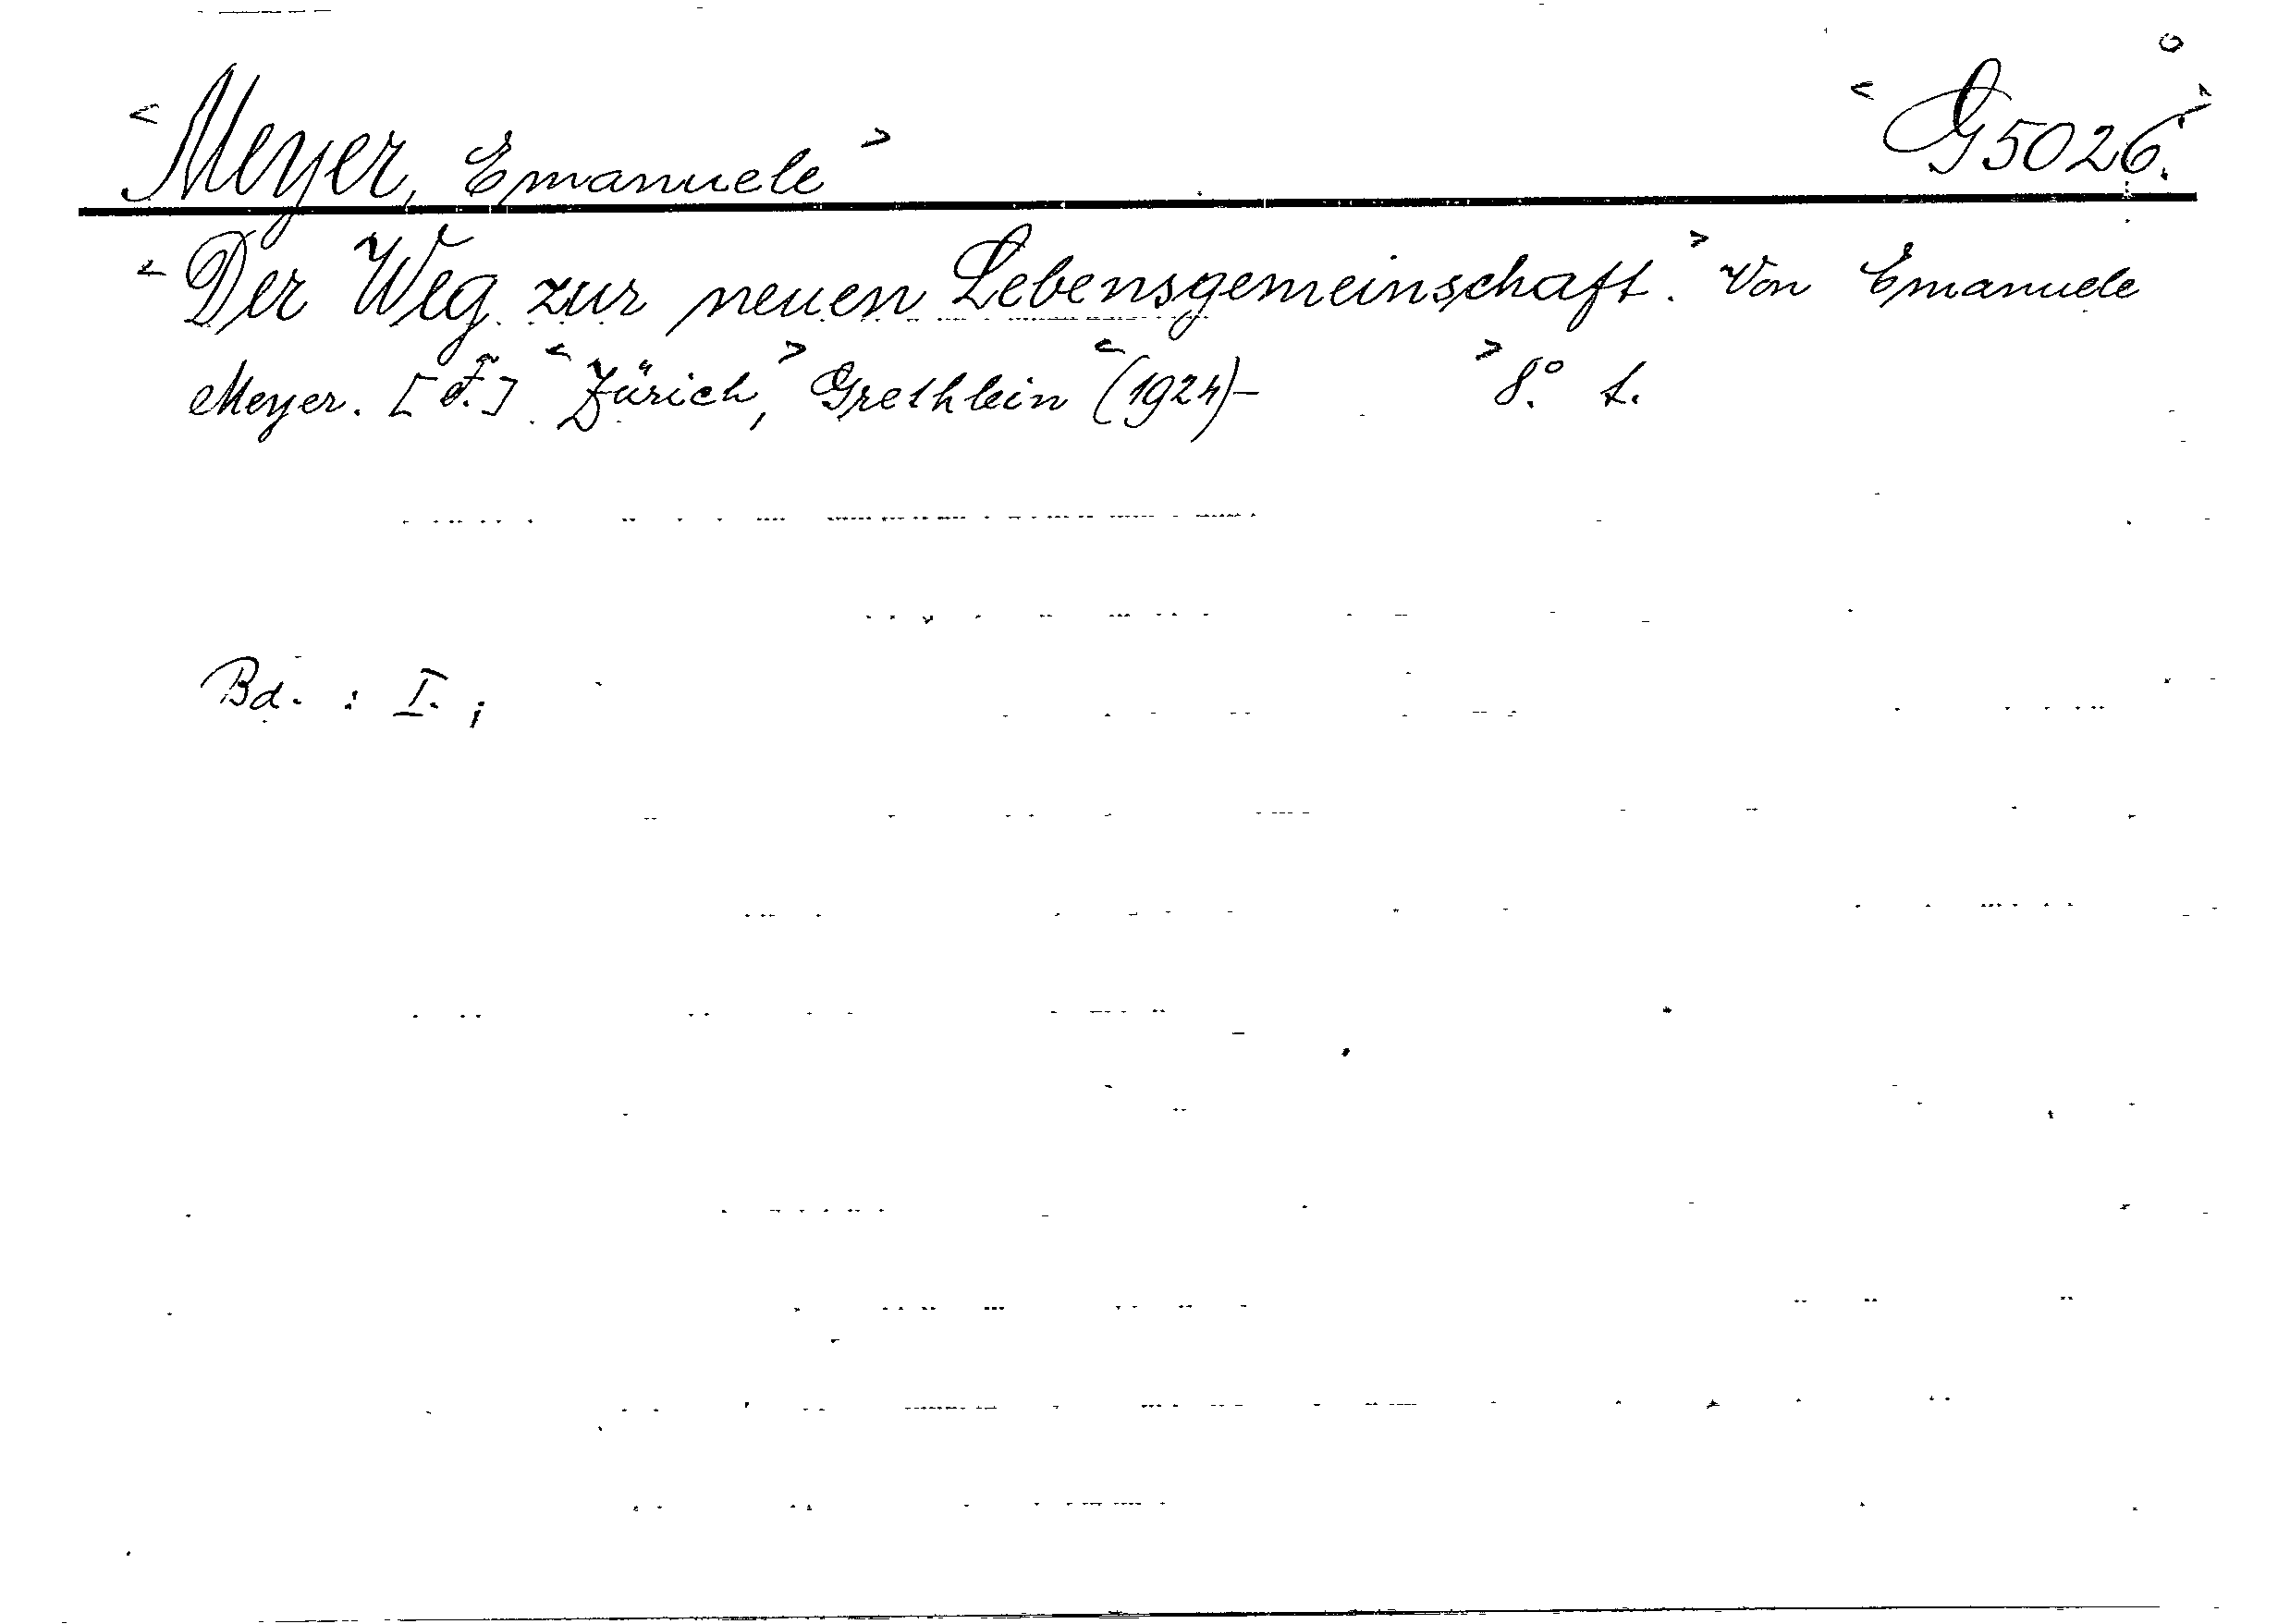 <Meyer, Emanuele> <G5026.>
<Der Weg zur neuen Lebensgemeinschaft.> Von Emanuele
Meyer. [F.] <Zürich,> Grethlein <(1924)- > 8°. L.
Bd. : I. ;